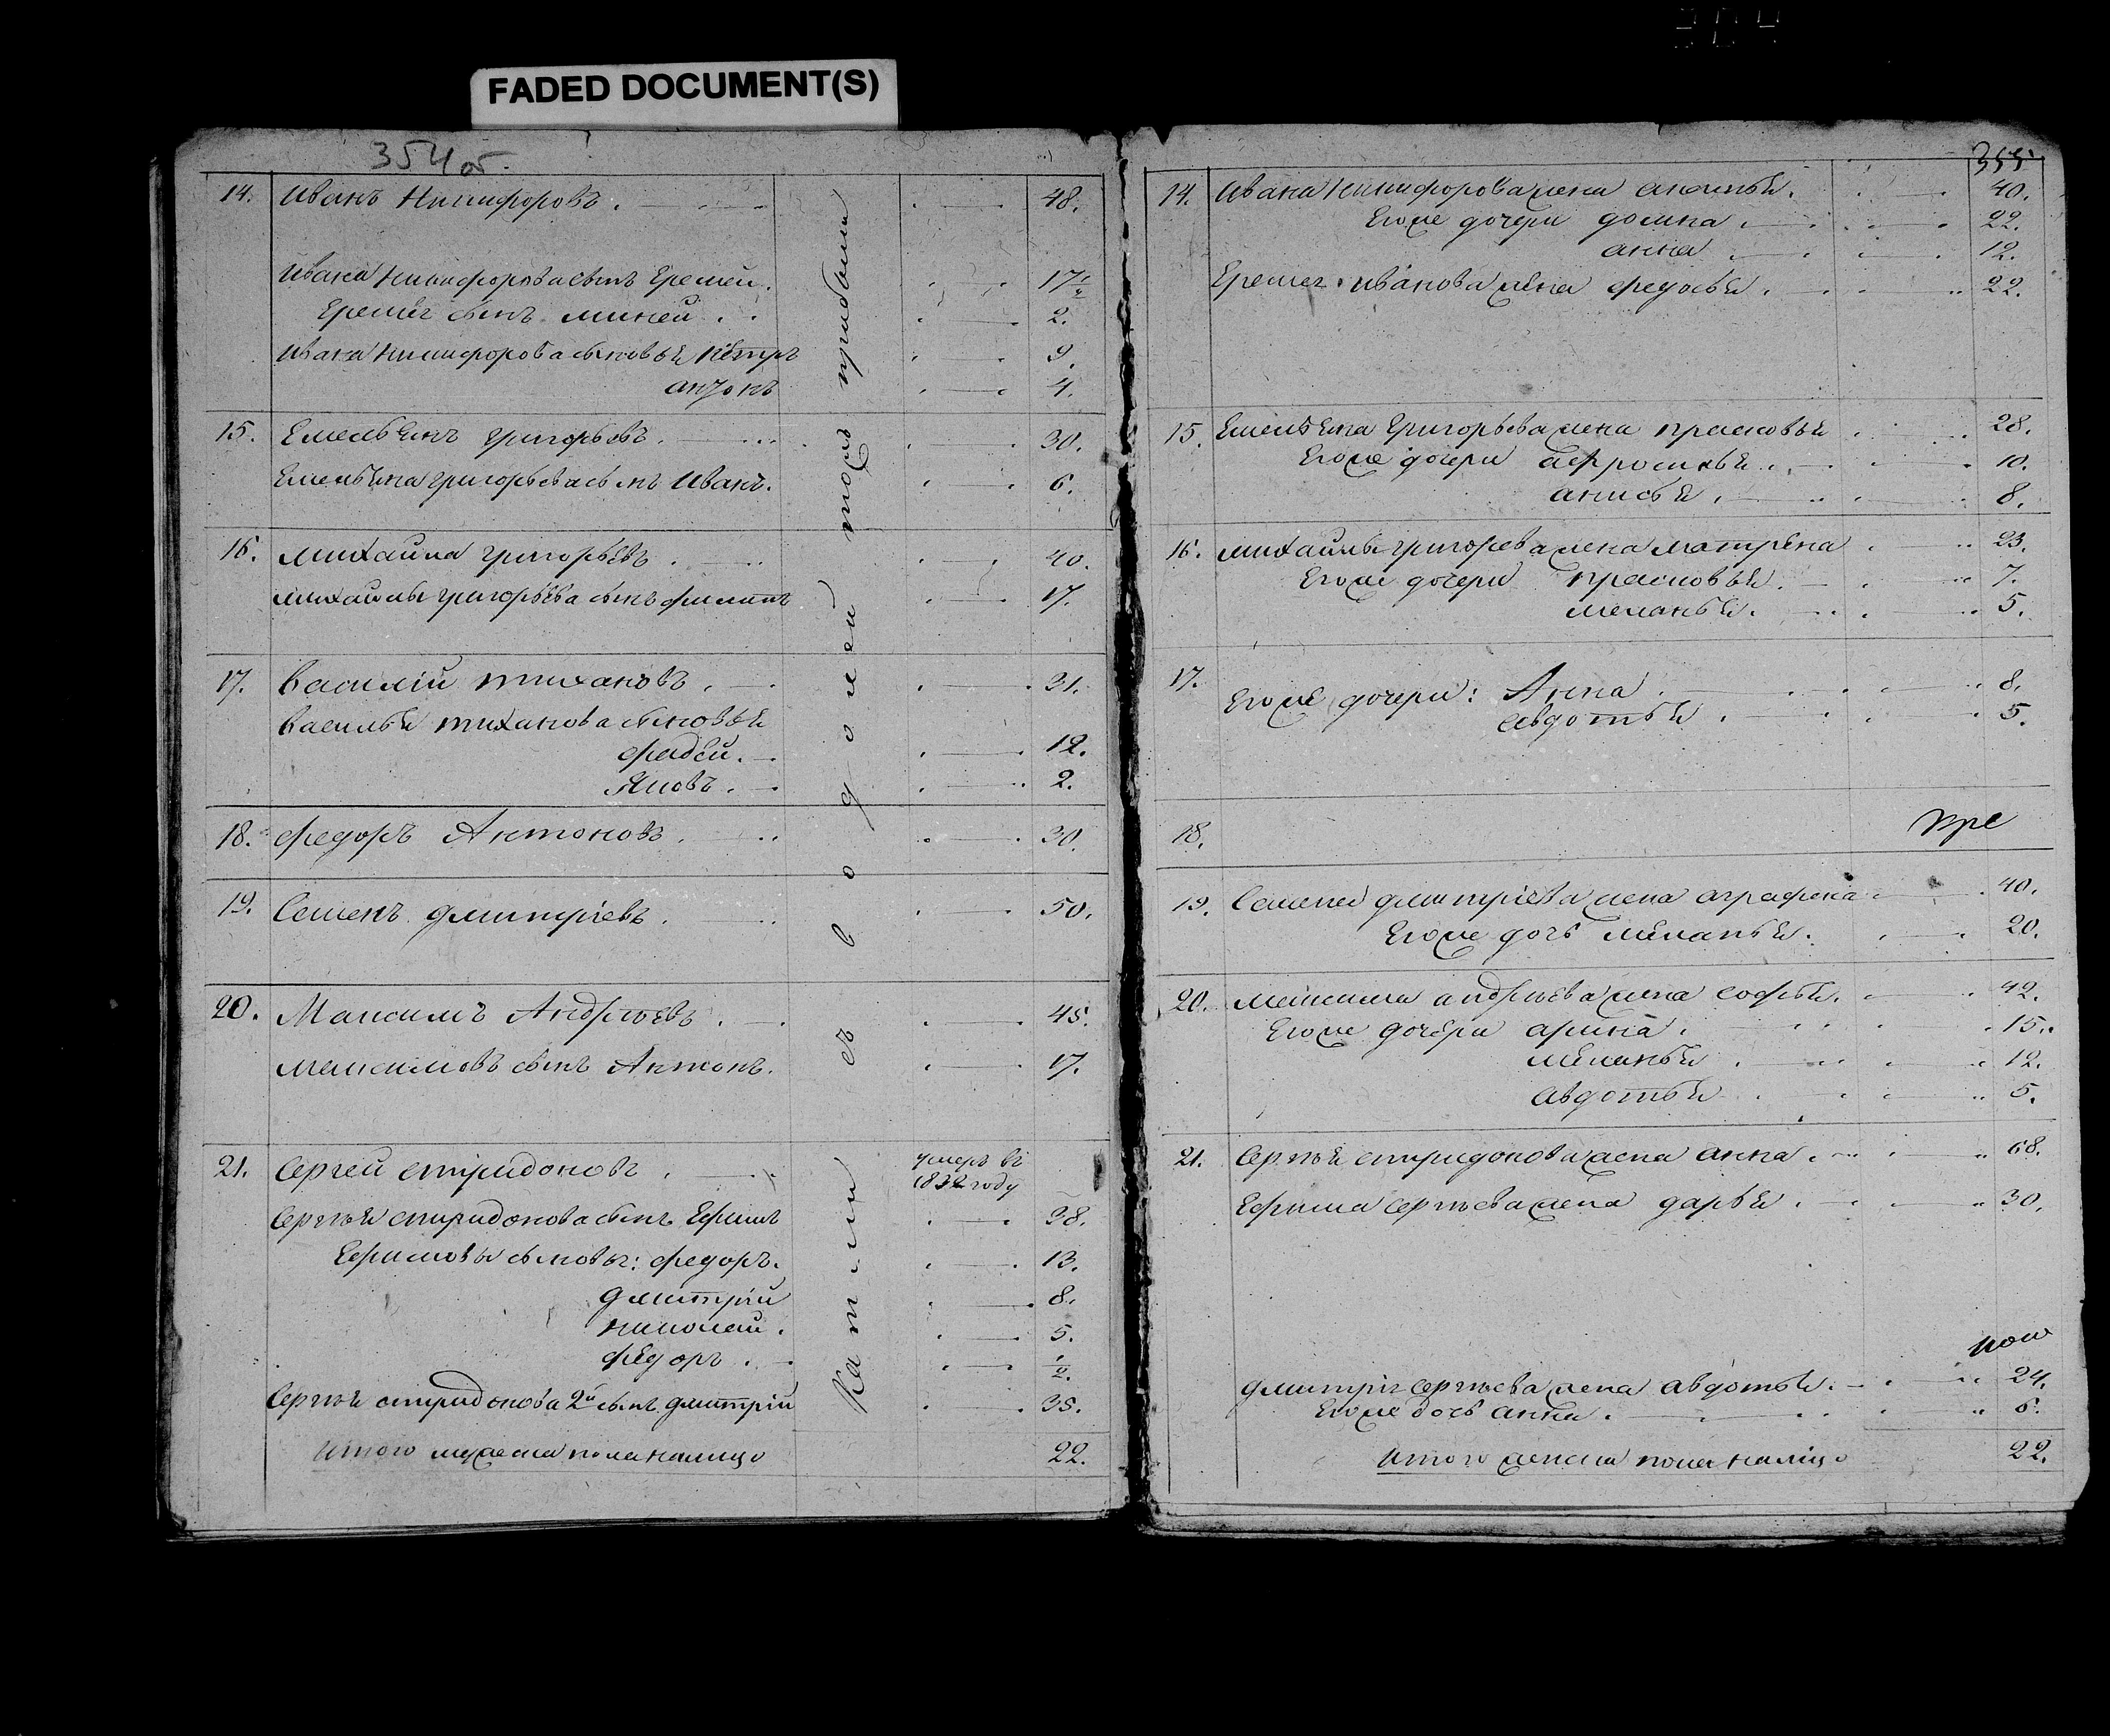 FADED DOCUMENT(S)
354 об.
14. Иванъ Никифоровъ. 48.
Ивана Никифорова сынъ Еремей. 17 1/2
Еремея сынъ Миней. 2.
Ивана Никифорова сыновья Петръ 9.
Антонъ 4.
15. Емельянъ Григорьевъ. 30.
Емельяна Григорьева сынъ Иванъ. 6.
16. Михайла Григорьевъ. 40.
Михайлы Григорьева сынъ Филипъ 17.
17. Василій Тихановъ. 31.
Василья Тиханова сыновья
Фадей. 12.
Яковъ. 2.
18. Федоръ Антоновъ. 30.
19. Семенъ Дмитріевъ. 50.
20. Максимъ Андреевъ. 45.
Максимовъ сынъ Антонъ. 17.
21. Сергей Спиридоновъ. умеръ въ
1832 году
Сергѣя Спиридонова сынъ Ефимъ 38.
Ефимовы сыновья: Федоръ. 13.
Дмитрій 8.
Николай. 5.
Федоръ. 1/2.
Сергѣя Спиридонова 2й сынъ Дмитрій 35.
Итого мужеска пола налицо 22.
въ 1832 году
355
14. Ивана Никифорова жена 40.
Его же дочери 22.
Анна 12.
Еремея Иванова жена Федосья. 22.
15. Емельяна Григорьева жена Прасковья 28.
Его же дочери Афросинья. 10.
Анисья. 8.
16. Михайлы Григорьева жена Матрена 23.
Его же дочери Прасковья. 7.
Меланья. 5.
17. Его же дочери: Анна. 8.
Авдотья. 5.
18.
19. Семена Дмитріева жена Аграфена 40.
Его же дочь Меланья. 20.
20. Максима Андреева жена Софья. 42.
Его же дочери Арина. 15.
Меланья. 12.
Авдотья. 5.
21. Сергѣя Спиридонова жена Анна. 68.
Ефима Сергѣева жена Дарья. 30.
Дмитрія Сергѣева жена Авдотья. 24.
Его же дочь Анна. 6.
Итого женска пола налицо 22.